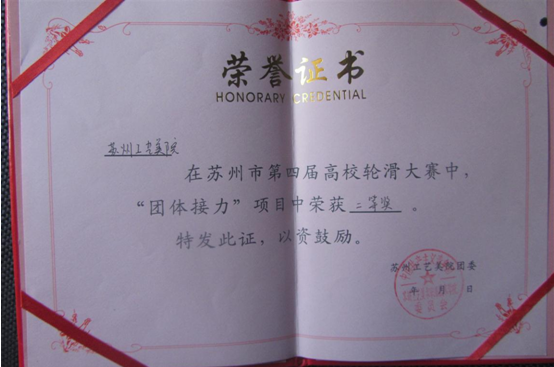 荣誉证书
HONORARY CREDENTIAL
苏州工艺美院
在苏州市第四届高校轮滑大赛中，
“团体接力”项目中荣获二等奖。
特发此证，以资鼓励。
苏州工艺美院团委
年 月 日